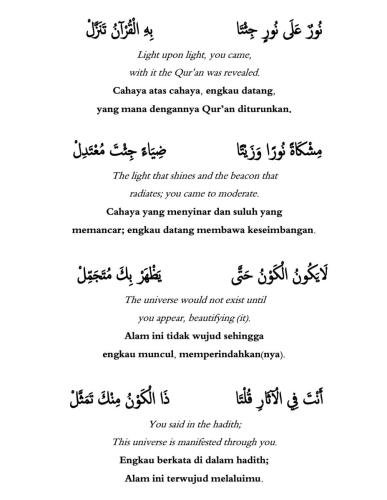 نُورٌ عَلَى نُورٍ جِئْتَا بِهِ الْقُرْآنُ تَنَزَّلْ
Light upon light, you came,
with it the Qur'an was revealed.
Cahaya atas cahaya, engkau datang,
yang mana dengannya Qur'an diturunkan.
مِشْكَاةً نُورًا وَزَيْتًا ضِيَاءً جِئْتَ مُعْتَدِلْ
The light that shines and the beacon that
radiates; you came to moderate.
Cahaya yang menyinar dan suluh yang
memancar; engkau datang membawa keseimbangan.
لَايَكُونُ الْكَوْنُ حَتَّى يَظْهَرْ بِكَ مُتَجَمِّلْ
The universe would not exist until
you appear, beautifying (it).
Alam ini tidak wujud sehingga
engkau muncul, memperindahkan(nya).
أَنْتَ فِي الْآثَارِ قُلْتَا ذَا الْكَوْنُ مِنْكَ تَمَثَّلْ
You said in the hadith;
This universe is manifested through you.
Engkau berkata di dalam hadith;
Alam ini terwujud melaluimu.